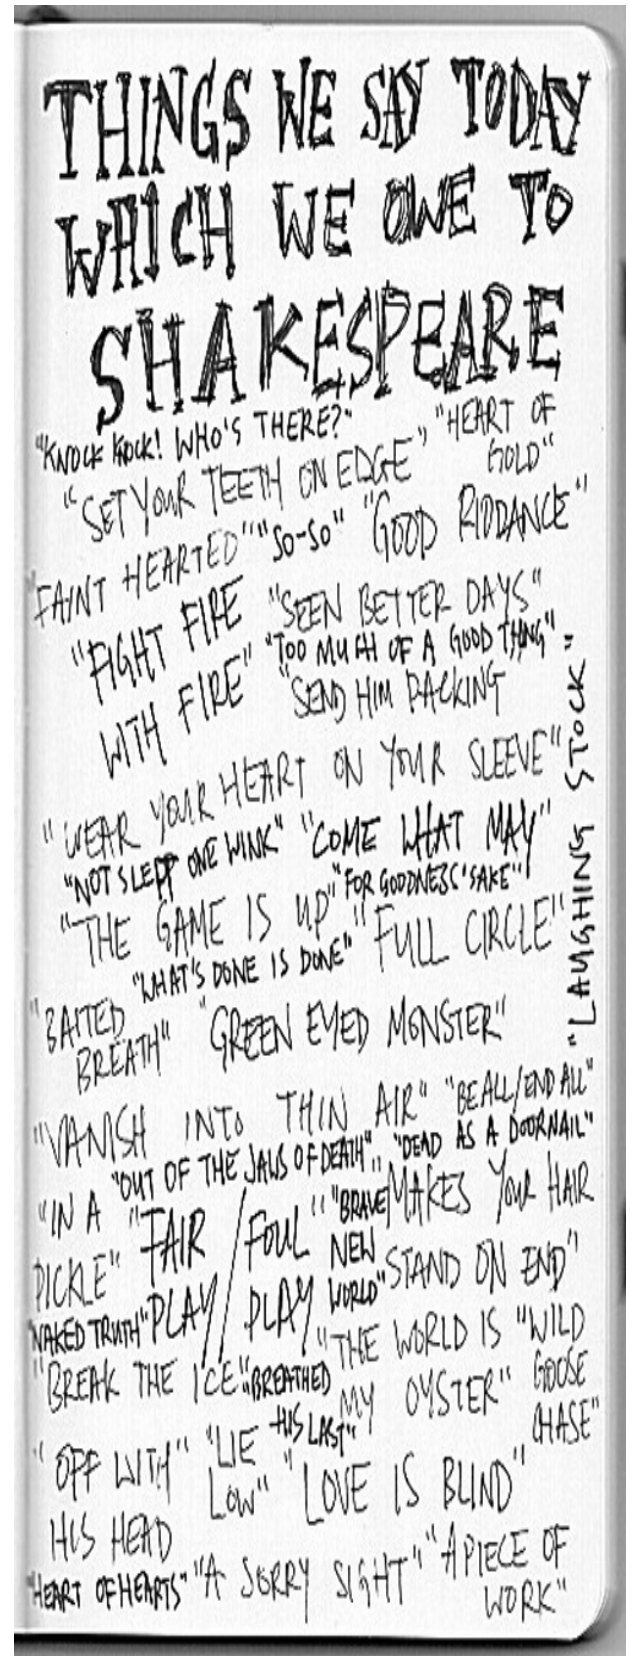 THINGS WE SAY TODAY
WHICH WE OWE TO
SHAKESPEARE
"KNOCK KNOCK! WHO'S THERE?" "HEART OF
GOLD"
"SET YOUR TEETH ON EDGE"
"FAINT HEARTED" "SO-SO" "GOOD RIDDANCE"
"FIGHT FIRE
WITH FIRE"
"SEEN BETTER DAYS"
"TOO MUCH OF A GOOD THING"
"SEND HIM PACKING
"LAUGHING STOCK"
"WEAR YOUR HEART ON YOUR SLEEVE"
"NOT SLEPT ONE WINK" "COME WHAT MAY"
"THE GAME IS UP" "FOR GOODNESS'SAKE"
"WHAT'S DONE IS DONE" "FULL CIRCLE"
"BAITED
BREATH" "GREEN EYED MONSTER"
"VANISH INTO THIN AIR" "BE ALL/END ALL"
"OUT OF THE JAWS OF DEATH" "DEAD AS A DOORNAIL"
"IN A
PICKLE"
"FAIR PLAY / FOUL PLAY
"BRAVE
NEW
WORLD"
"MAKES YOUR HAIR
STAND ON END"
"NAKED TRUTH"
"BREAK THE ICE" "BREATHED
HIS LAST"
"THE WORLD IS
MY OYSTER"
"WILD
GOOSE
CHASE"
"OFF WITH"
HIS HEAD
"LIE
LOW"
"LOVE IS BLIND"
"HEART OF HEARTS" "A SORRY SIGHT" "A PIECE OF
WORK"